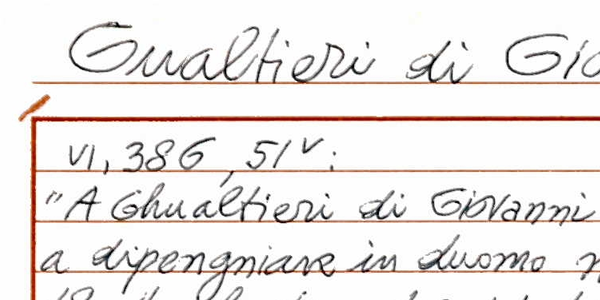 Gualtieri di Gio
VI, 386, 51v:
"A Ghualtieri di Giovanni
a dipengniare in duomo